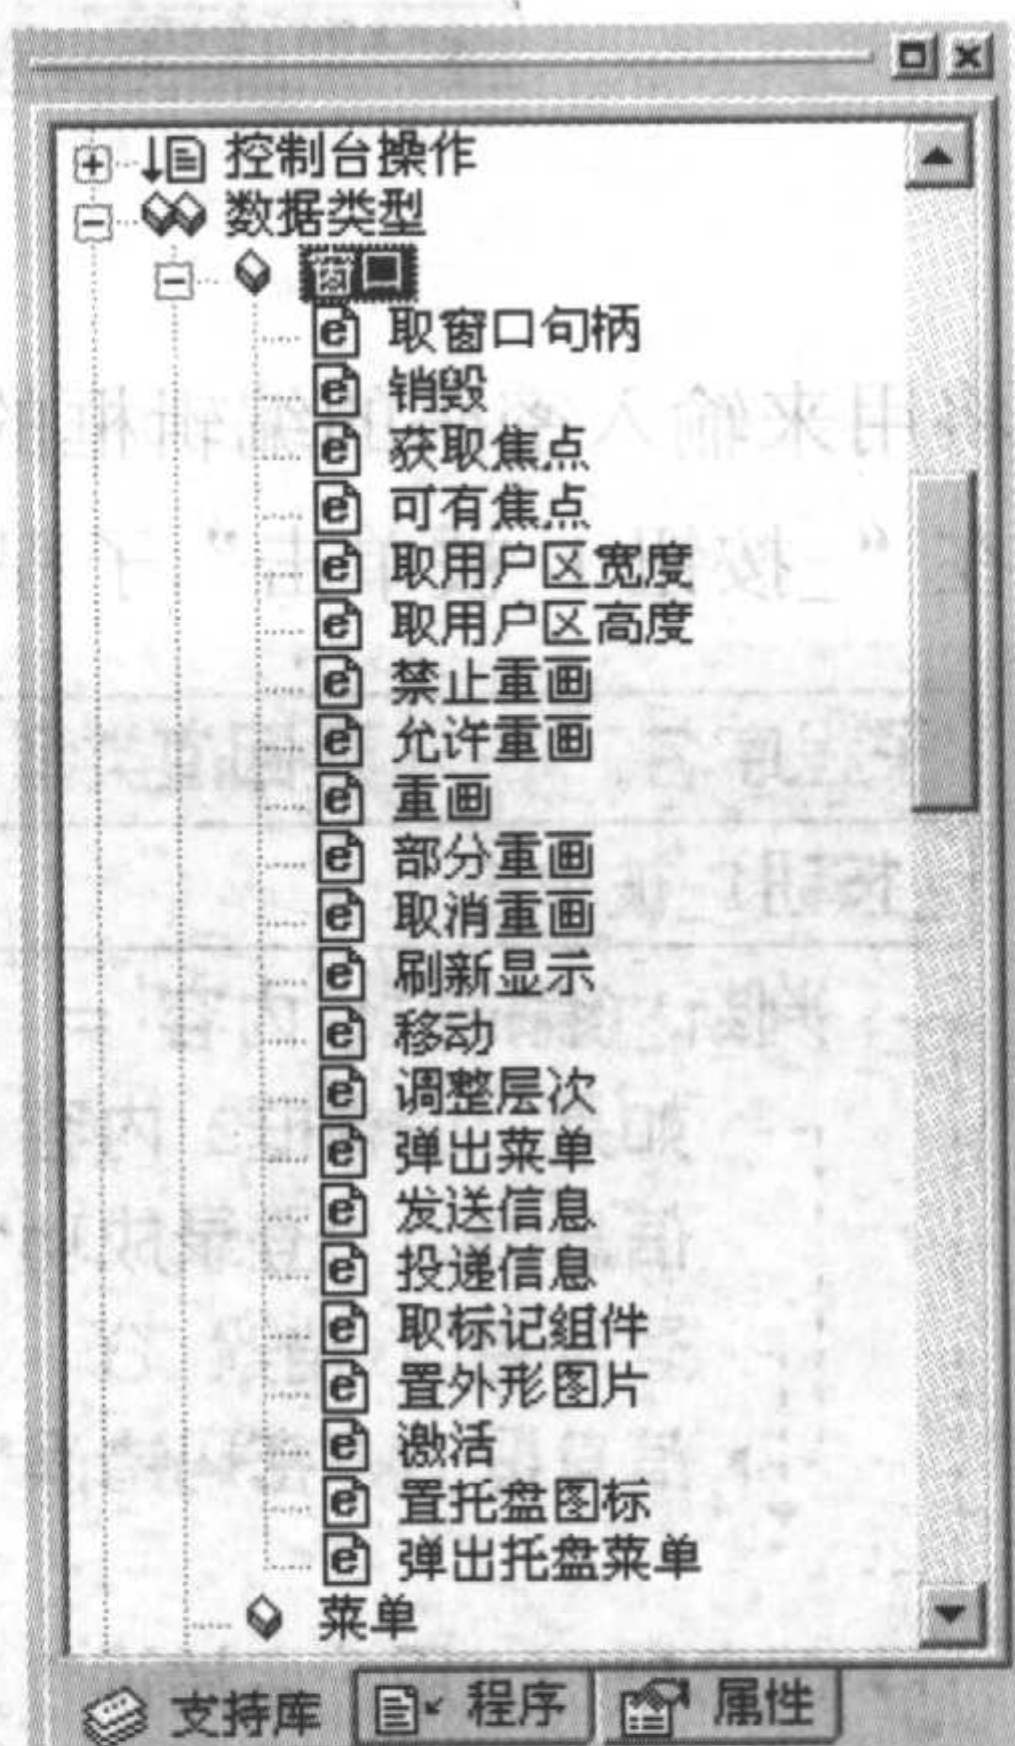 控制台操作
数据类型
窗口
取窗口句柄
销毁
获取焦点
可有焦点
取用户区宽度
取用户区高度
禁止重画
允许重画
重画
部分重画
取消重画
刷新显示
移动
调整层次
弹出菜单
发送信息
投递信息
取标记组件
置外形图片
激活
置托盘图标
弹出托盘菜单
菜单
支持库 程序 属性